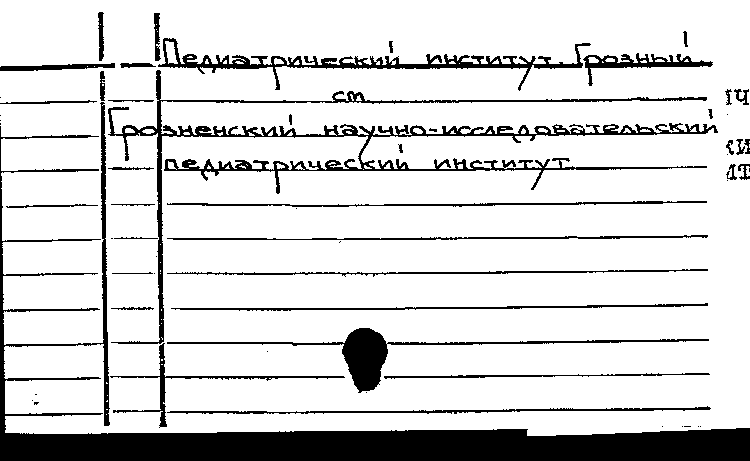 Педиатрический институт. Грозный
см
Грозненский научно-исследовательский
педиатрический институт